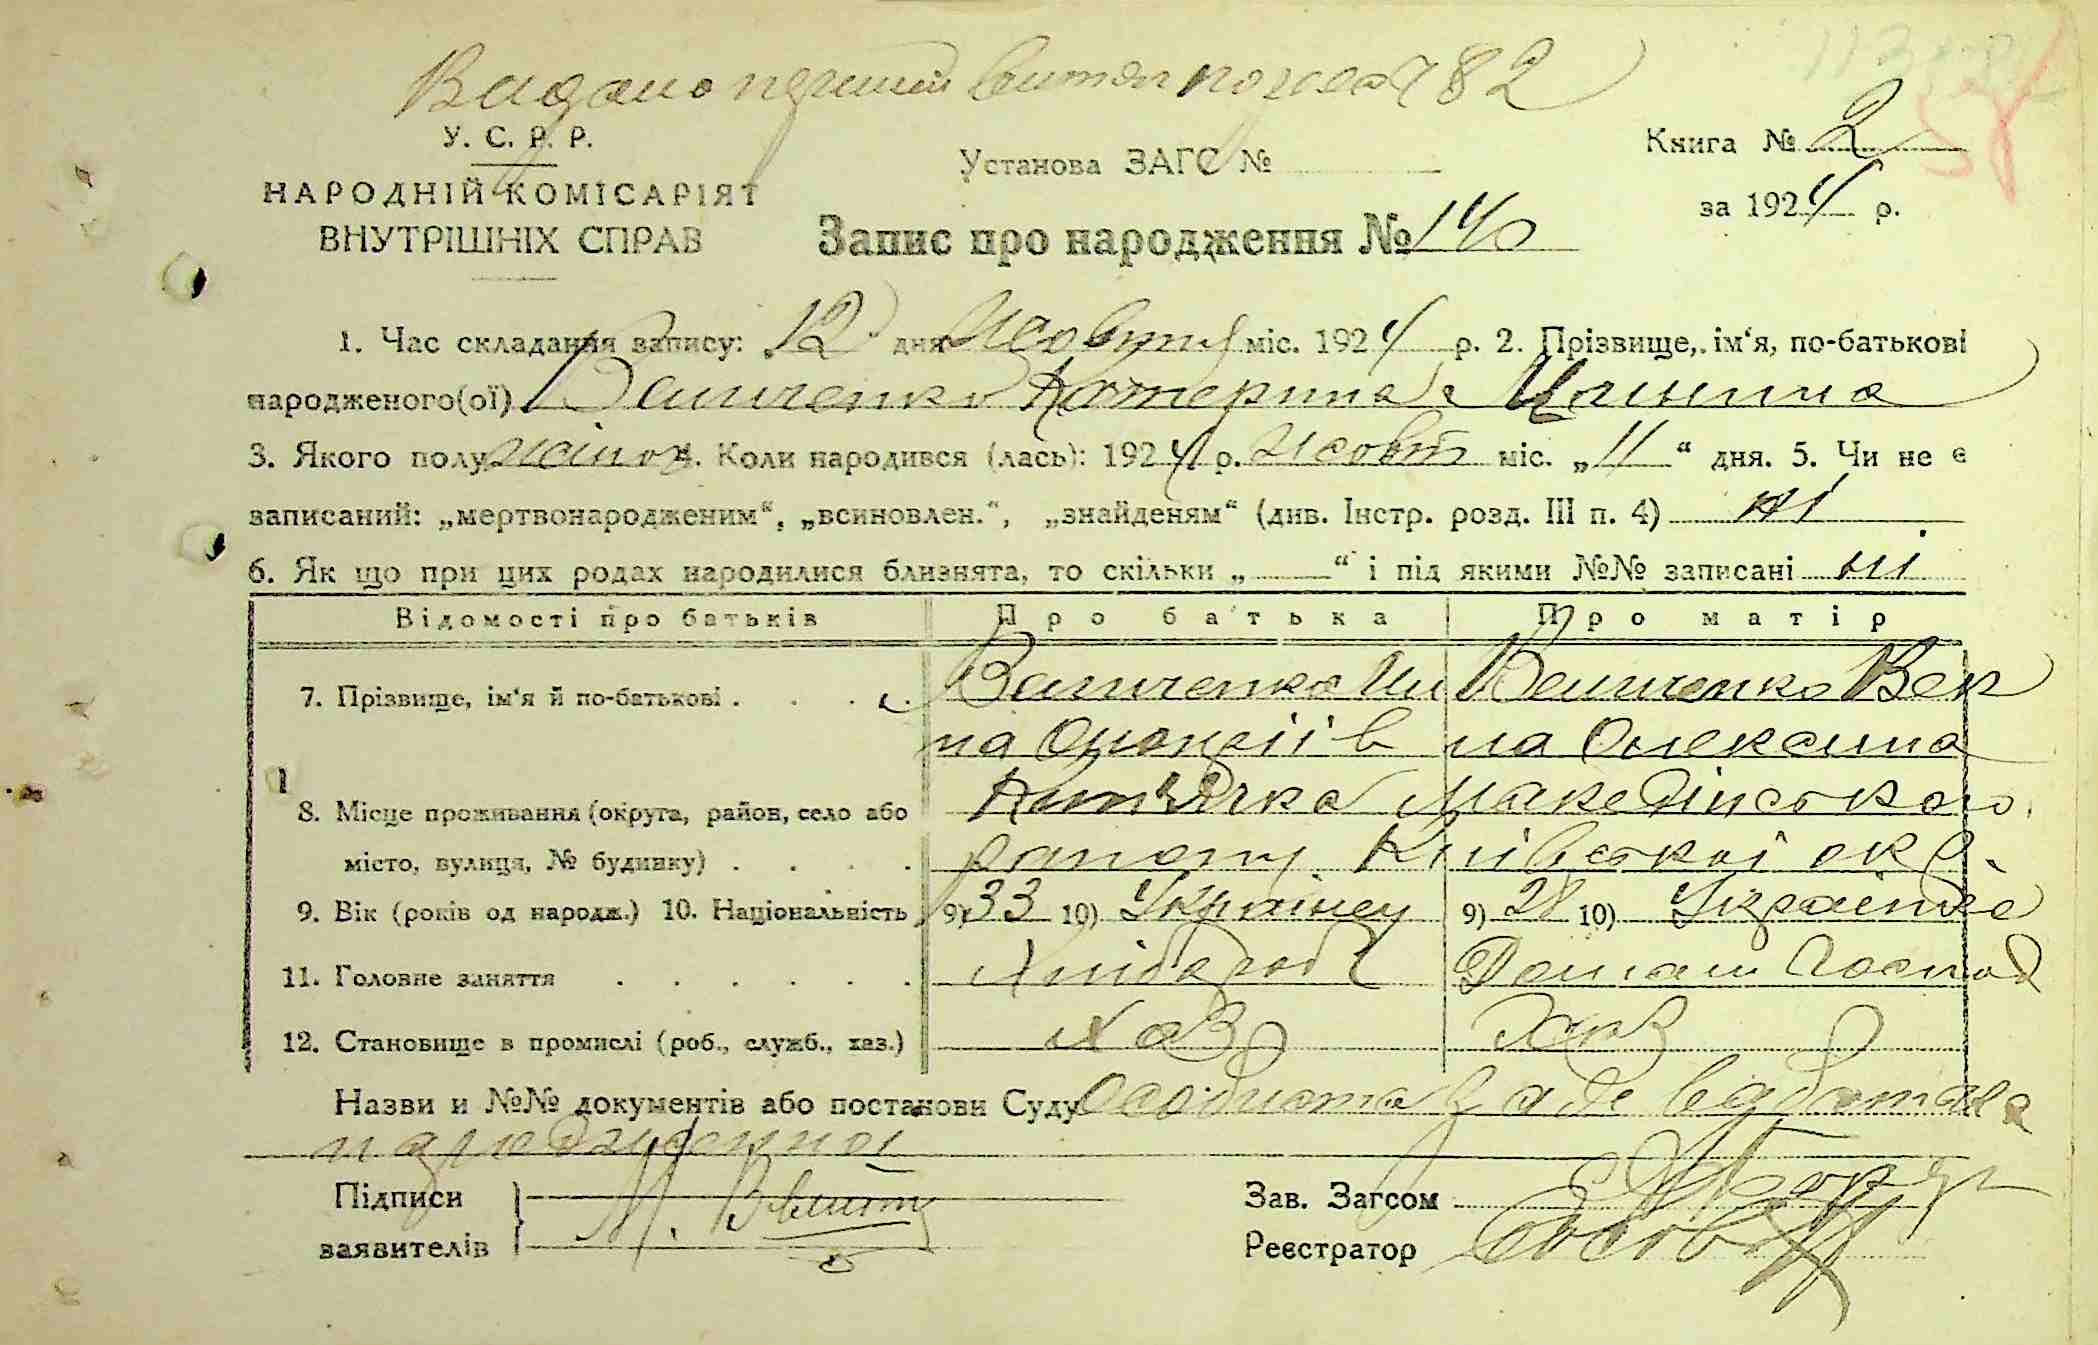 Видано перший витяг по реєс 782
У. С. Р. Р.
Установа ЗАГС №
Книга № 2
НАРОДНІЙ КОМІСАРІЯТ
ВНУТРІШНІХ СПРАВ
за 1924 р.
Запис про народження № 140
1. Час складання запису: „12“ дня Жовтня міс. 1924 р. 2. Прізвище, ім‘я, по-батькові
народженого(ої) Ващенко Катерина
3. Якого полу жіноч. Коли народився (лась): 1924 р. Жовт міс. „11“ дня. 5. Чи не є
записаний: „мертвонародженим“, „всиновлен.“, „знайденям“ (див. Інстр. розд. III п. 4) ні
6. Як що при цих родах народилися близнята, то скільки „ “ і під якими №№ записані ні
Відомості про батьків Про батька Про матір
7. Прізвище, ім‘я й по-батькові . . . . Ващенко Ващенко
на Олексіїв на Олексина
8. Місце проживання (округа, район, село або
місто, вулиця, № будинку) . . . . району Київської окр.
9. Вік (років од народж.) 10. Національність 9) 33 10) Українец 9) 28 10) Українка
11. Головне заняття . . . . . . Хлібороб Домаш Господ
12. Становище в промислі (роб., служб., хаз.) Хаз Хаз
Назви и №№ документів або постанови Суду Особиста
народженної
Підписи М.
заявителів
Зав. Загсом
Реєстратор